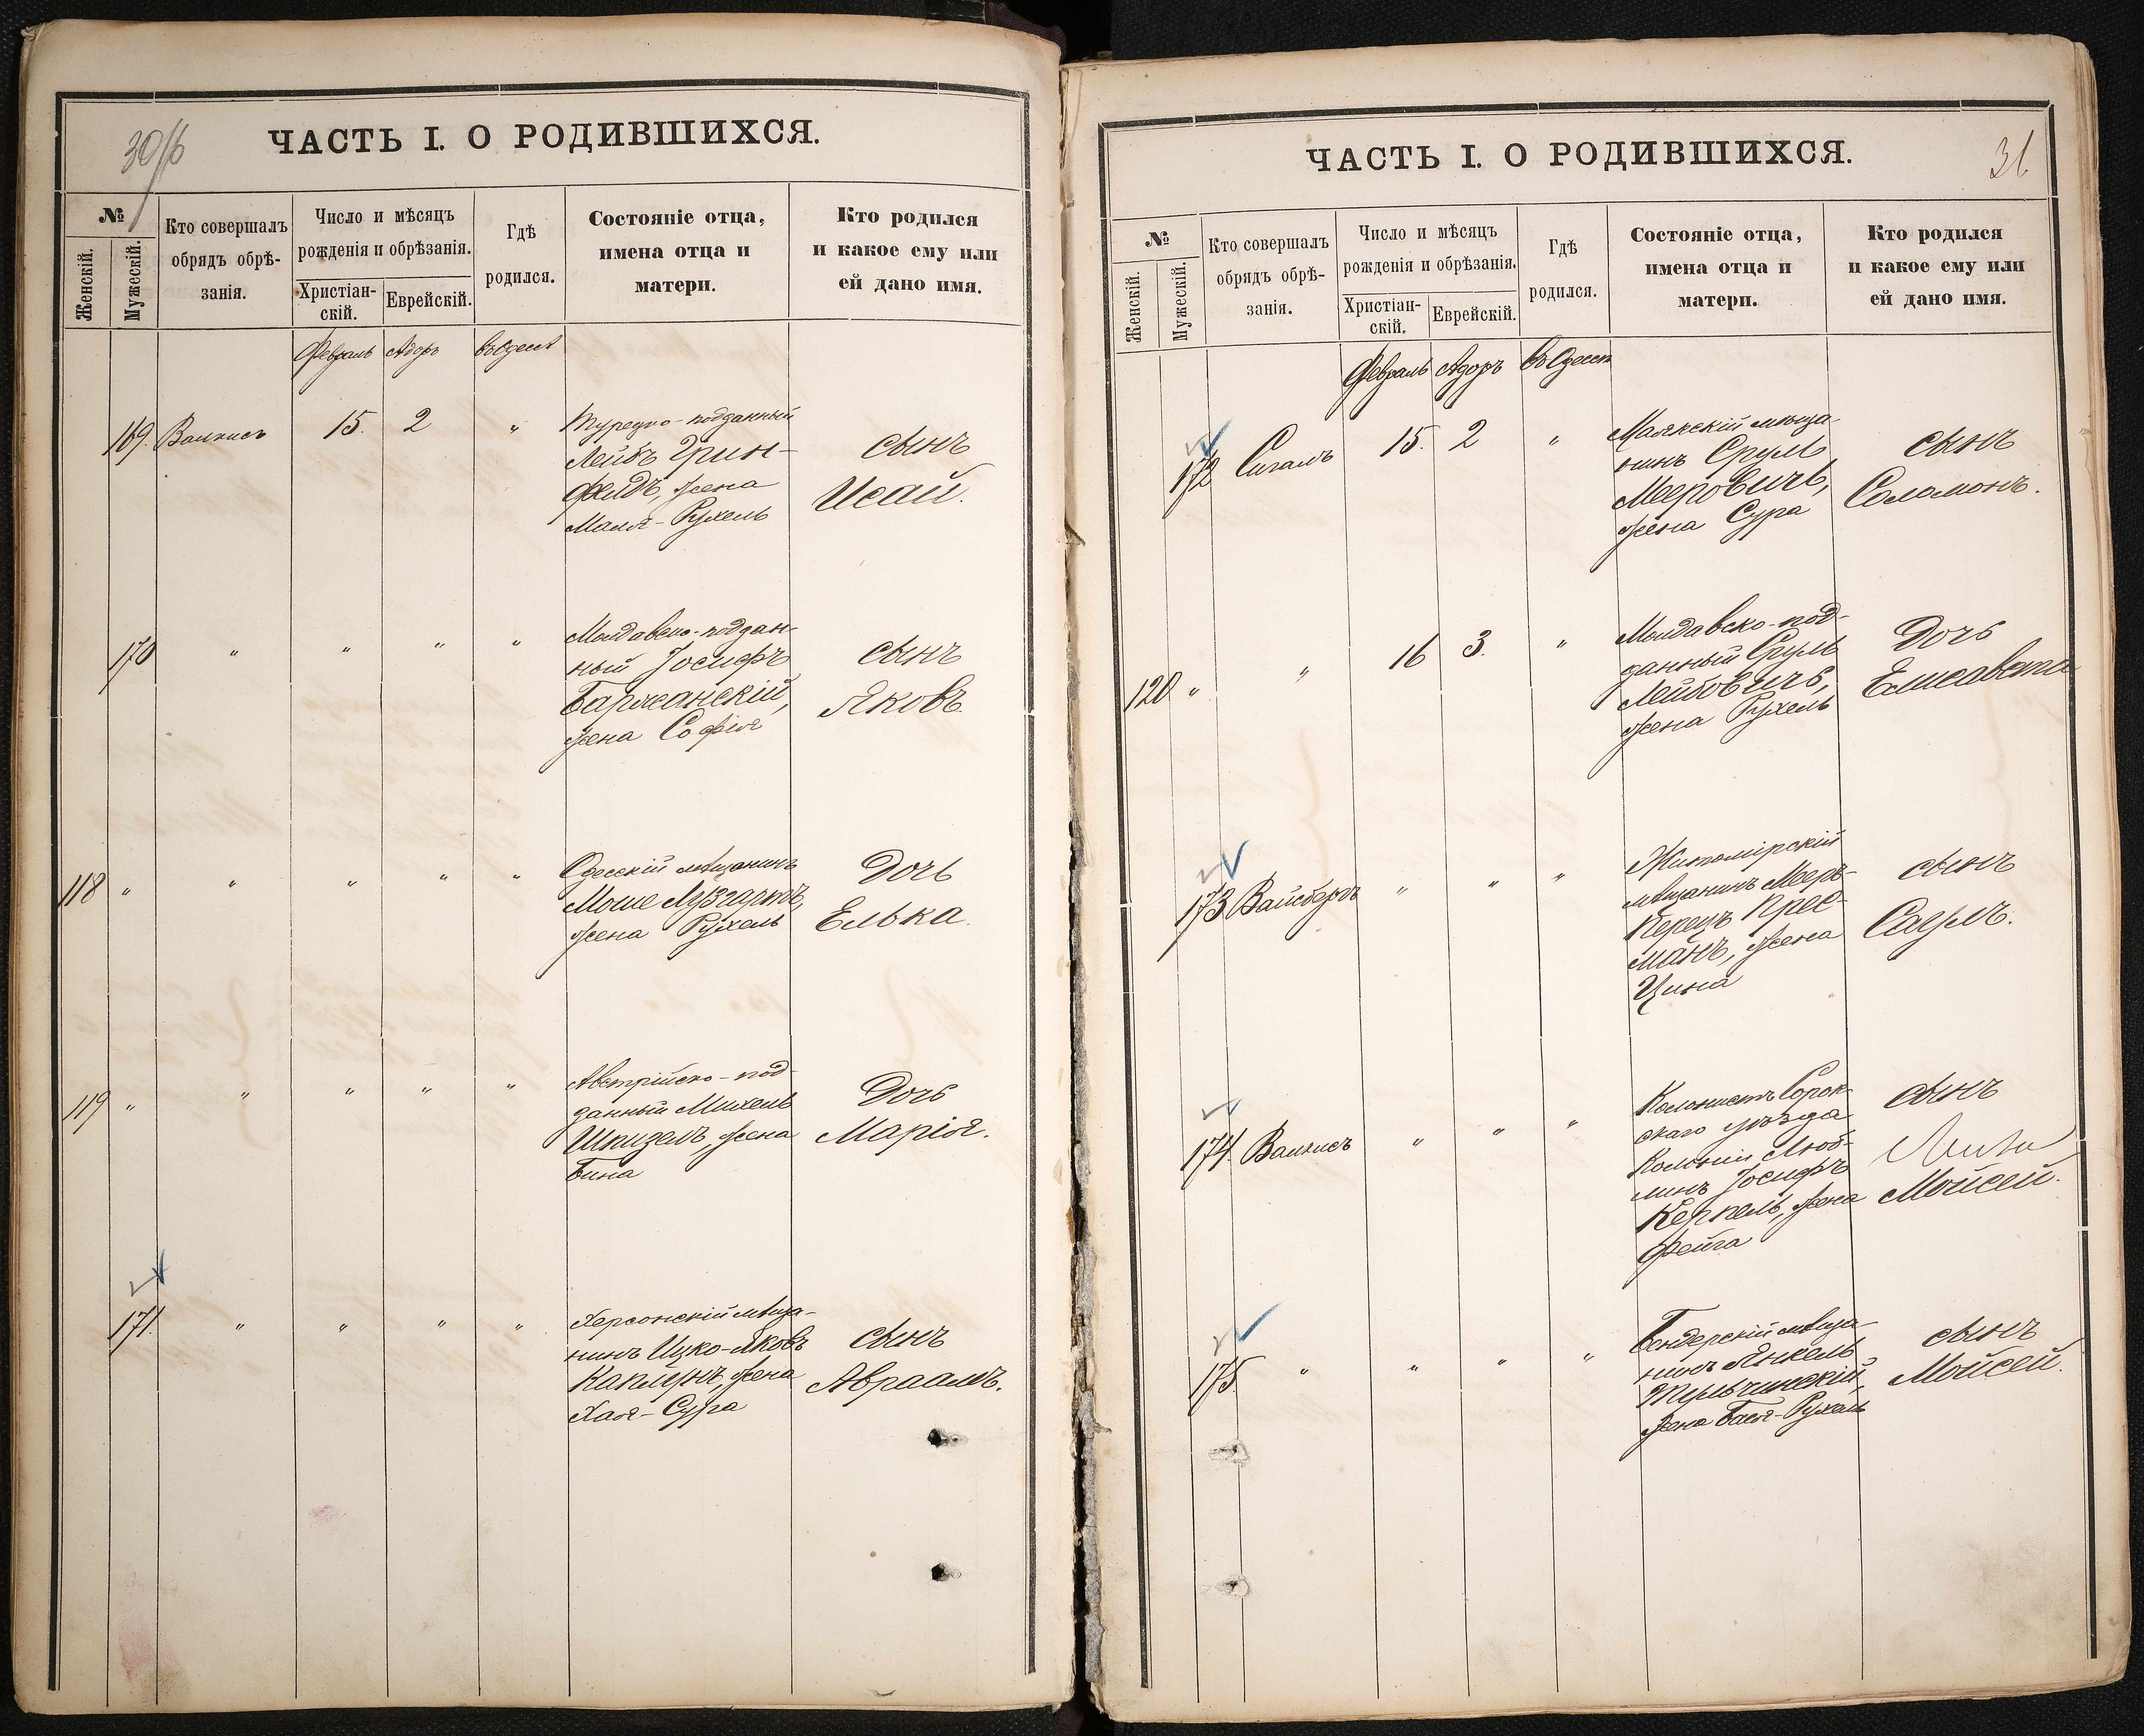 30/б
ЧАСТЬ I. О РОДИВШИХСЯ.
№
Женскій.
Мужескій.
Кто совершалъ
обрядъ обрѣ-
занія.
Число и мѣсяцъ
рожденія и обрѣзанія.
Христіан-
скій.
Еврейскій.
Гдѣ
родился.
Состояніе отца,
имена отца и
матери.
Кто родился
и какое ему или
ей дано имя.
Февраль Адоръ въ Одессѣ
169. Валкисъ 15. 2 " Турецко-подданный
Лейбъ Грин-
фельдъ, жена
Маля-Рухель
сынъ
Исай.
170 " " " " Молдавско-поддан-
ный Іосифъ
Баржанскій,
жена Софія
сынъ
Яковъ.
118 " " " " " Одесскій мѣщанинъ
Моше Лузгартъ,
жена Рухель
Дочь
Елька.
119 " " " " " Австрійско-под-
данный Михель
Шпизель, жена
Бина
Дочь
Марія.
171. " " " " Херсонскій мѣща-
нинъ Ицко-Яковъ
Каплунъ, жена
Хая-Сура
сынъ
Авраамъ.
31
ЧАСТЬ I. О РОДИВШИХСЯ.
№
Женскій.
Мужескій.
Кто совершалъ
обрядъ обрѣ-
занія.
Число и мѣсяцъ
рожденія и обрѣзанія.
Христіан-
скій.
Еврейскій.
Гдѣ
родился.
Состояніе отца,
имена отца и
матери.
Кто родился
и какое ему или
ей дано имя.
Февраль Адоръ въ Одессѣ
172 Сигалъ 15. 2 " Маякскій мѣща-
нинъ Сруль
Мееровичъ,
жена Сура
сынъ
Соломонъ.
120 " " 16 3. " Молдавско-под-
данный Сруль
Лейбовичъ,
жена Рухель
Дочь
Елисавета
173 Вайсбергъ " " " Житомірскій
мѣщанинъ Мееръ-
Перецъ Крес-
манъ, жена
Цина
сынъ
Саулъ.
174. Валкисъ " " " Колонистъ Сорок-
скаго уѣзда
Колоніи Люб-
линъ Іосифъ
Керпель, жена
Фейга
сынъ
Мойсей.
175. " " " " Бендерскій мѣща-
нинъ Янкель
Тульчинскій,
жена Бася-Рухель
сынъ
Мойсей.